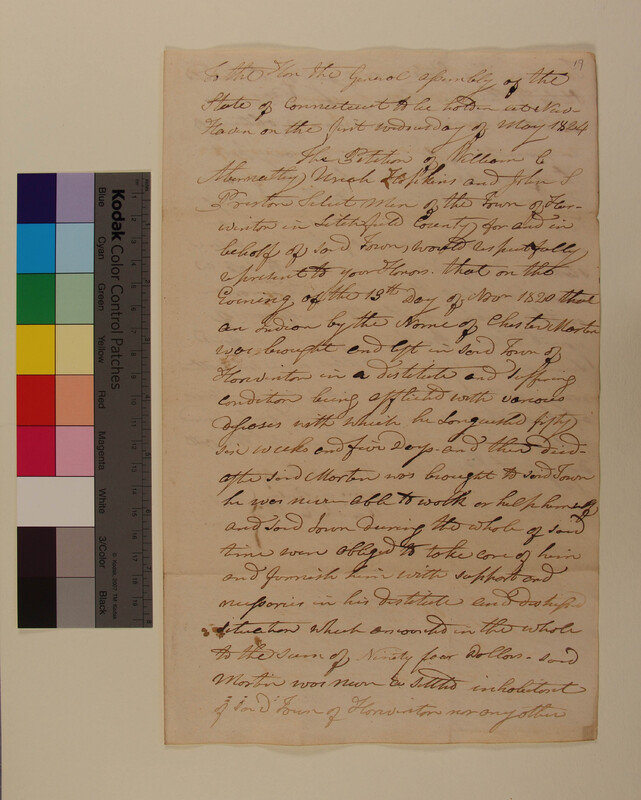 19
To the Hon the General assembly of the
State of Connecticut to be holden at New-
Haven on the first wednesday of May 1824
The Petition of William C
Abernathy, Uriah Hopkins and John S
Preston Select Men of the Town of Har-
winton in Litchfield County for and in
behalf of said Town, would respectfully
represent to your Honors. that on the
Evening of the 13th Day of Novr 1820 that
an indian by the Name of Chester Morten
was brought and left in said Town of
Harwinton in a distitute and suffering
condition being afflicted with various
diseases with which he Languished fifty
six weeks and five Days and then died-
after said Morten was brought to said Town
he was never able to walk or help himself
and said Town during the whole of said
time were obliged to take care of him
and furnish him with support and
nessaries in his distitute and distressed
situation which amounted in the whole
to the sum of Ninety four Dollars - said
Mortin was never a settled inhabitant
of said Town of Harwinton nor any other
Kodak Color Control Patches
Blue
Cyan
Green
Yellow
Red
Magenta
White
3/Color
Black